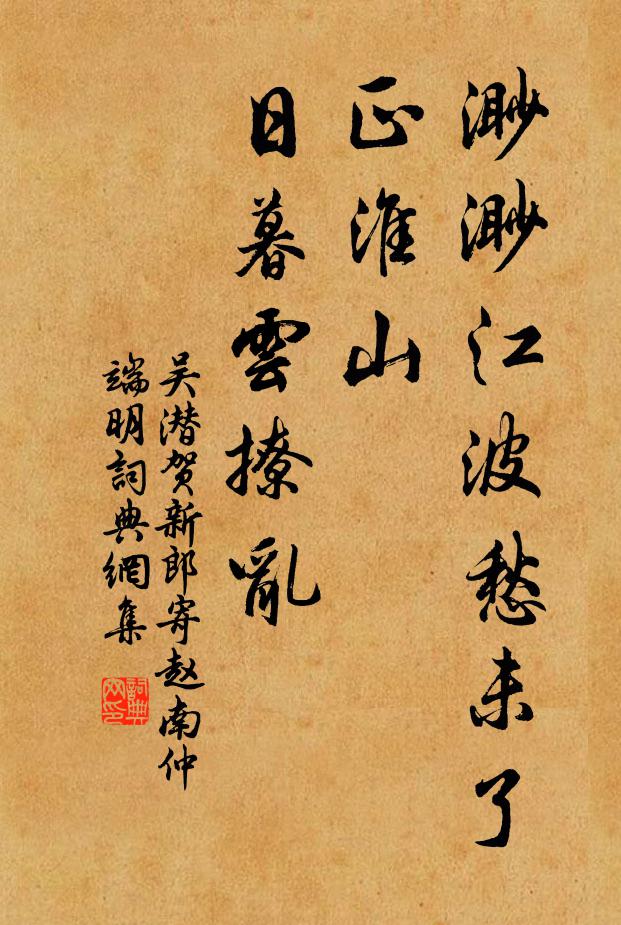 渺渺江波愁未了
正淮山
日暮雲撩亂
吴潜贺新郎寄赵南仲
端明詞典網集
詞典
网印